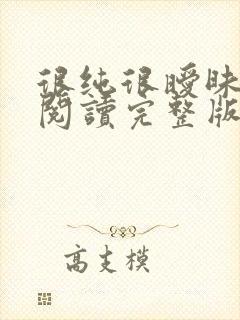 很純很曖昧
閱讀完整版
高支模